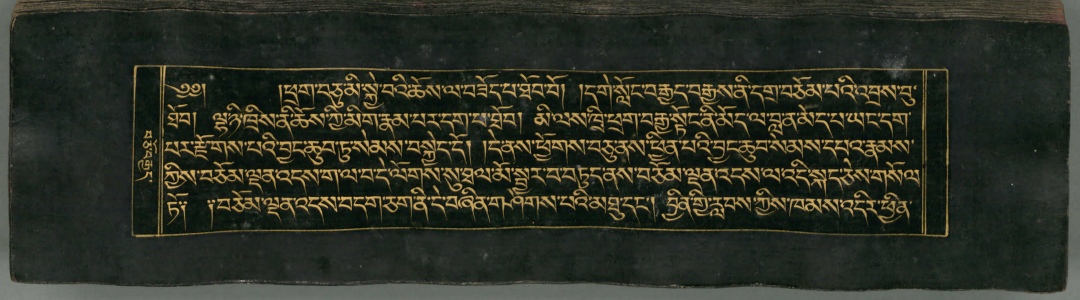 ༄༅། །ཕྲག་བཅུ་མི་སྐྱེ་བའི་ཆོས་ལ་བཟོད་པ་ཐོབ་བོ། །དགེ་སློང་བརྒྱད་བརྒྱས་ནི་དགྲ་བཅོམ་པའི་འབྲས་བུ་
ཐོབ། ལྷ་ཉི་ཁྲིས་ནི་ཆོས་ཀྱི་མིག་རྣམ་པར་དག་པ་ཐོབ། མི་ལས་ཁྲི་ཕྲག་བརྒྱ་སྟོང་ནི་མོད་ལ་བླ་ན་མེད་པ་ཡང་དག་
པར་རྫོགས་པའི་བྱང་ཆུབ་ཏུ་སེམས་བསྐྱེད་དོ། །དེ་ནས་ཕྱོགས་བཅུ་ནས་ཕྱིན་པའི་བྱང་ཆུབ་སེམས་དཔའ་རྣམས་
ཀྱིས་བཅོམ་ལྡན་འདས་ག་ལ་བ་དེ་ལོགས་སུ་ཐལ་མོ་སྦྱར་བ་བཏུད་ནས་བཅོམ་ལྡན་འདས་ལ་འདི་སྐད་ཅེས་གསོལ་
ཏོ༎ ༎བཅོམ་ལྡན་འདས་བདག་ཅག་ནི་དེ་བཞིན་གཤེགས་པའི་མཐུ་དང་། བྱིན་གྱི་རླབས་ཀྱིས་ཁམས་འདིར་ཕྱིན་